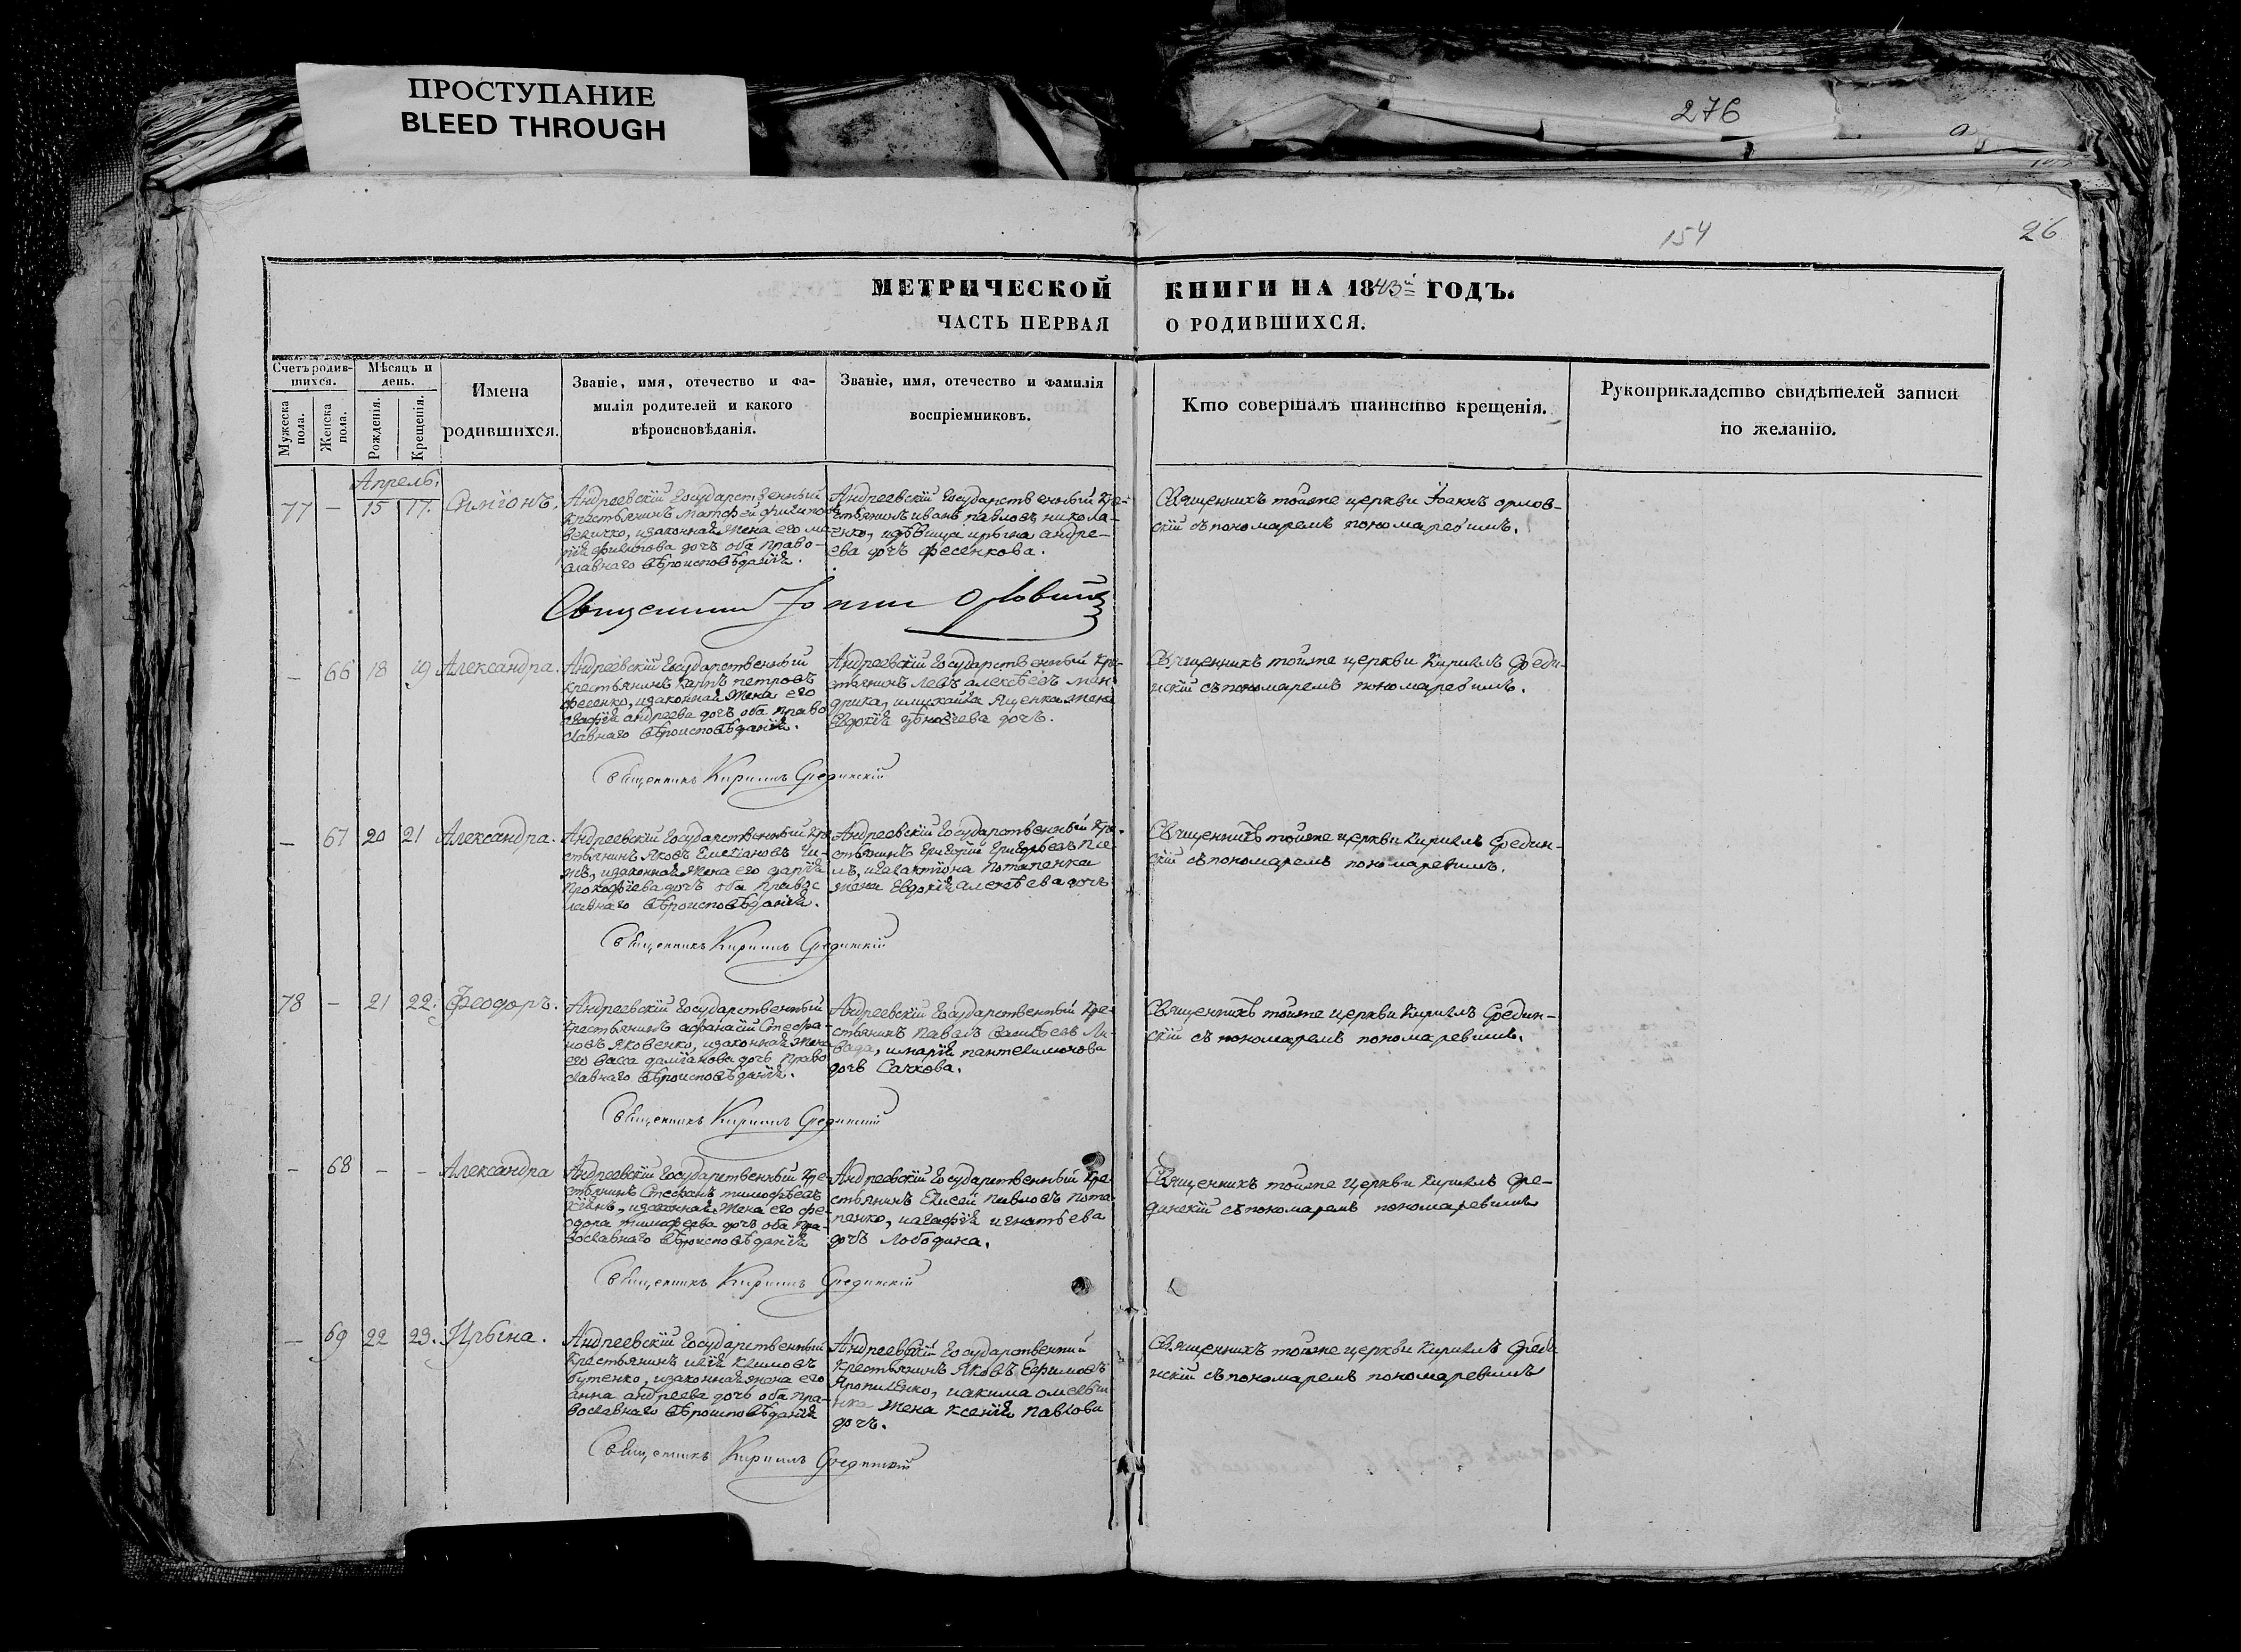 ПРОСТУПАНИЕ
BLEED THROUGH
276
154
26
МЕТРИЧЕСКОЙ КНИГИ НА 1843й ГОДЪ.
ЧАСТЬ ПЕРВАЯ О РОДИВШИХСЯ.
Счетъ родив-
шихся.
Мужеска
пола.
Женска
пола.
Мѣсяцъ и
день.
Рожденія.
Крещенія.
Имена
родившихся.
Званіе, имя, отечество и фа-
милія родителей и какого
вѣроисповѣданія.
Званіе, имя, отечество и фамилія
воспріемниковъ.
Кто совершалъ таинство крещенія.
Рукоприкладство свидѣтелей записи
по желанію.
Апрель.
77 — 15 17. Симіонъ.
Андреевскій государственный
крестьянинъ Матфей
Величко, изаконная жена его
дочь оба право-
славнаго вѣроисповѣданія.
Андреевскій государственный кре-
стьянинъ иванъ павловъ никола-
енко, идѣвица ирына андре-
ева дочь фесенкова.
Священникъ тойже церкви Іоаннъ орлов-
скій съ пономаремъ пономаревимъ.
Священникъ Іоаннъ
— 66 18 19 Александра.
Андреевскій государственный
крестьянинъ Карпъ петровъ
фесенко, изаконная жена его
агафія андреева дочь оба право
славнаго вѣроисповѣданія.
Андреевскій государственный кре-
стьянинъ левъ алексѣевъ ман-
дрика, имихаила Ященка жена
Евдокія дочь.
Священникъ тойже церкви Кириллъ Среди-
нскій съ пономаремъ пономаревимъ.
Священникъ Кириллъ Срединскій
— 67 20 21 Александра.
Андреевскій государственный кре
стьянинъ Яковъ Емеліановъ
изаконная жена его дарія
Прокофіева дочь оба правос
лавнаго вѣроисповѣданія.
Андреевскій государственный кре-
стьянинъ григорій григорьевъ
игалактіона Потапенка
жена Евдокія алексѣева дочь
Священникъ тойже церкви Кириллъ Средин-
скій съ пономаремъ пономаревимъ.
Священникъ Кириллъ Срединскій
78 — 21 22. Феодоръ.
Андреевскій государственный
крестьянинъ афанасій Стефа-
новъ Яковенко, изаконная жена
его Васса даміанова дочь право
славнаго вѣроисповѣданія.
Андреевскій государственный кре-
стьянинъ Павелъ Василѣевъ Ли-
вада, имарія пантелимонова
дочь Сачкова.
Священникъ тойже церкви Кириллъ Средин-
скій съ пономаремъ пономаревимъ.
Священникъ Кириллъ Срединскій
— 68 — — Александра
Андреевскій государственный кре-
стьянинъ Стефанъ тимофѣевъ
изаконная жена его фе-
одора тимофеева дочь оба пра-
вославнаго вѣроисповѣданія
Андреевскій государственный кре
стьянинъ Елисей павловъ Пота
пенко, иагафія игнатьева
дочь Лободина.
Священникъ тойже церкви Кириллъ Сре-
динскій съ пономаремъ пономаревимъ
Священникъ Кириллъ Срединскій
— 69 22 23. Ирына.
Андреевскій государственный
крестьянинъ илія климовъ
бутенко, изаконная жена его
анна андреева дочь оба пра-
вославнаго вѣроисповѣданія
Андреевскій государственний
крестьянинъ Яковъ Ефимовъ
иакима
жена ксенія павлова
дочь.
Священникъ тойже церкви Кириллъ Среди
нскій съ пономаремъ пономаревимъ
Священникъ Кириллъ Срединскій